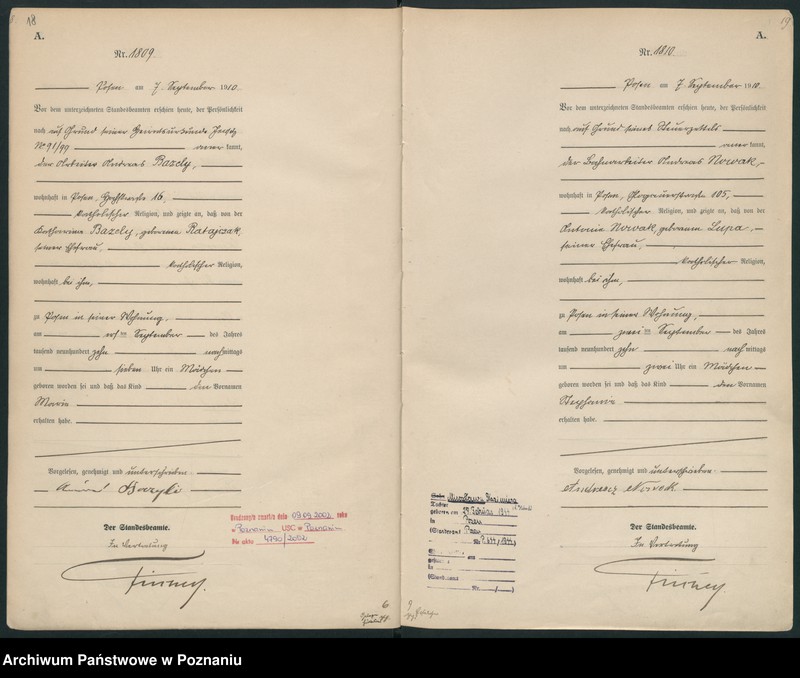 18
A.
Nr. 1809.
Posen am 7 September 1910.
Vor dem unterzeichneten Standesbeamten erschien heute, der Persönlichkeit
nach auf Grund seiner Heiratsurkunde
Nr 91/99 kannt,
der Arbeiter Andreas Bazely,
wohnhaft in Posen, 16,
katholischer Religion, und zeigte an, daß von der
Katharina Bazely, geborenen Ratajczak,
seiner Ehefrau,
katholischer Religion,
wohnhaft bei ihm,
zu Posen in seiner Wohnung,
am ersten September des Jahres
tausend neunhundert zehn nachmittags
um sieben Uhr ein Mädchen
geboren worden sei und daß das Kind den Vornamen
Maria
erhalten habe.
Vorgelesen, genehmigt und unterschrieben.
Bazyli
Der Standesbeamte.
In Vertretung
09.09.2002 roku
w Poznaniu USC w Poznaniu
Nr aktu 4790/2002
6
19
A.
Nr. 1810.
Posen am 7 September 1910.
Vor dem unterzeichneten Standesbeamten erschien heute, der Persönlichkeit
nach auf Grund seines Steuerzettels
kannt,
der Bahnarbeiter Andreas Nowak,
wohnhaft in Posen, Glogauerstraße 105,
katholischer Religion, und zeigte an, daß von der
Antonie Nowak, geborenen Lupa,
seiner Ehefrau,
katholischer Religion,
wohnhaft bei ihm,
zu Posen in seiner Wohnung,
am zweiten September des Jahres
tausend neunhundert zehn nachmittags
um zwei Uhr ein Mädchen
geboren worden sei und daß das Kind den Vornamen
Stephanie
erhalten habe.
Vorgelesen, genehmigt und unterschrieben.
Andrzej Nowak
Der Standesbeamte.
In Vertretung
Tochter
geboren am
in Posen
(Standesamt Posen
Nr.
Archiwum Państwowe w Poznaniu